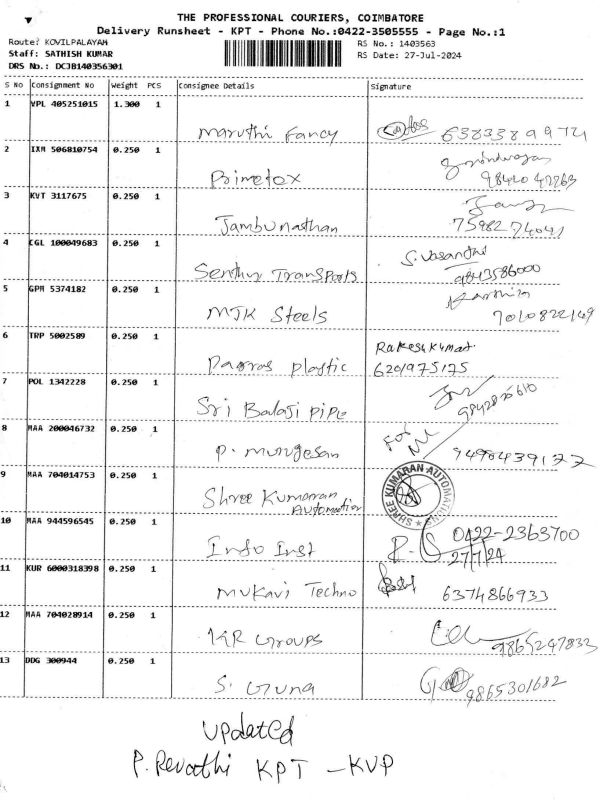 THE PROFESSIONAL COURIERS, COIMBATORE
Delivery Runsheet - KPT - Phone No.:0422-3505555 - Page No.:1
Route? KOVILPALAYAM
RS No.: 1403563
Staff: SATHISH KUMAR
RS Date: 27-Jul-2024
DRS No.: DCJB140356301
S No Consignment No Weight PCS Consignee Details Signature
1 VPL 405251015 1.300 1
Maruthi Fancy 6383389974
2 IXM 506810754 0.250 1
Primetox
3 KVT 3117675 0.250 1
Jambunathan 7598274041
4 CGL 100049683 0.250 1 S. Vasanthi
Senthur Transports 9843586000
5 GPM 5374182 0.250 1 Karthik
MJK Steels 7010822149
6 TRP 5002589 0.250 1 Rakesh Kumar
Plastic 6201975175
7 POL 1342228 0.250 1
Sri Balaji Pipe
8 MAA 200046732 0.250 1 For
P. Murugesan 9498439177
9 MAA 704014753 0.250 1
SHREE KUMARAN AUTOMATIONS
Shree Kumaran
Automation
10 MAA 944596545 0.250 1 0422-2363700
Info Inst 27/7/24
11 KUR 6000318398 0.250 1
Mukavi Techno 6374866933
12 MAA 704028914 0.250 1
KR Groups 9865247833
13 DDG 300944 0.250 1
S. Guna 9865301682
Updated
P. Revathi KPT - KVP